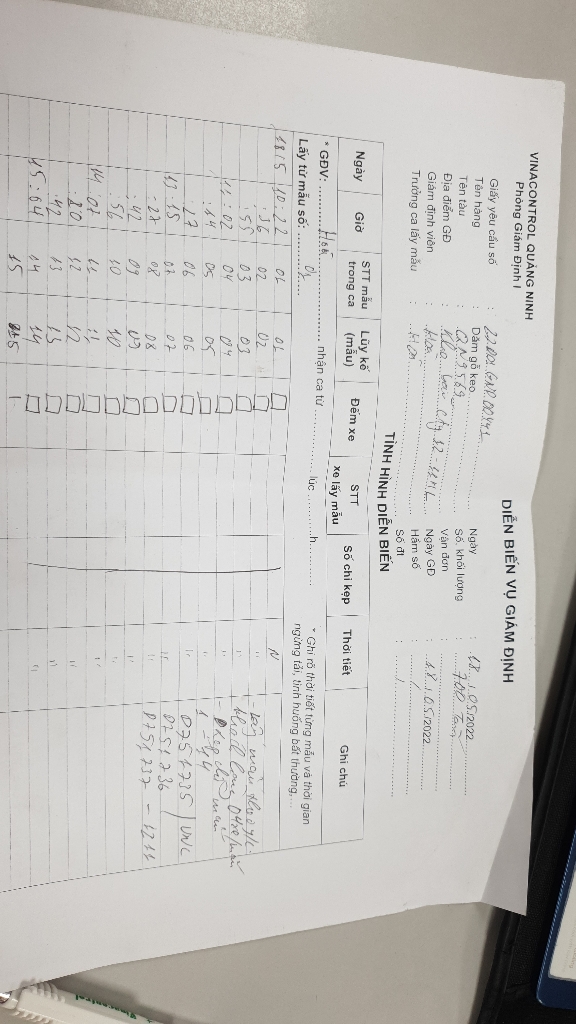 VINACONTROL QUANG NINH
Phòng Giám Định I
DIỄN BIẾN VỤ GIÁM ĐỊNH
Giấy yêu cầu số :
Ngày : 18/05/2022
Tên hàng : Dăm gỗ keo
Số, khối lượng : 700 tấn
Tên tàu : QN 9569
Vận đơn :
Địa điểm GĐ :
Ngày GĐ : 18/05/2022
Giám định viên : Hoà
Hầm số : /
Trưởng ca lấy mẫu : Hoà
Số đt : /
TÌNH HÌNH DIỄN BIẾN
Ngày Giờ STT mẫu trong ca Lũy kế (mẫu) Đếm xe STT xe lấy mẫu Số chì kẹp Thời tiết Ghi chú
* GĐV: Hoà nhận ca từ lúc h
* Ghi rõ thời tiết từng mẫu và thời gian ngừng tải, tình huống bất thường,...
Lấy từ mẫu số: 01
18/5 10:22 01 01 N
:36 02 02 "
:55 03 03 "
11:02 04 04 "
:14 05 05 "
:27 06 06 "
0751735 / VNC
13:15 07 07 "
0751736
:27 08 08 "
0751737 - 1211
:42 09 09 "
:56 10 10 "
14:07 11 11 "
:20 12 12 "
:42 13 13 "
15:04 14 14 "
15